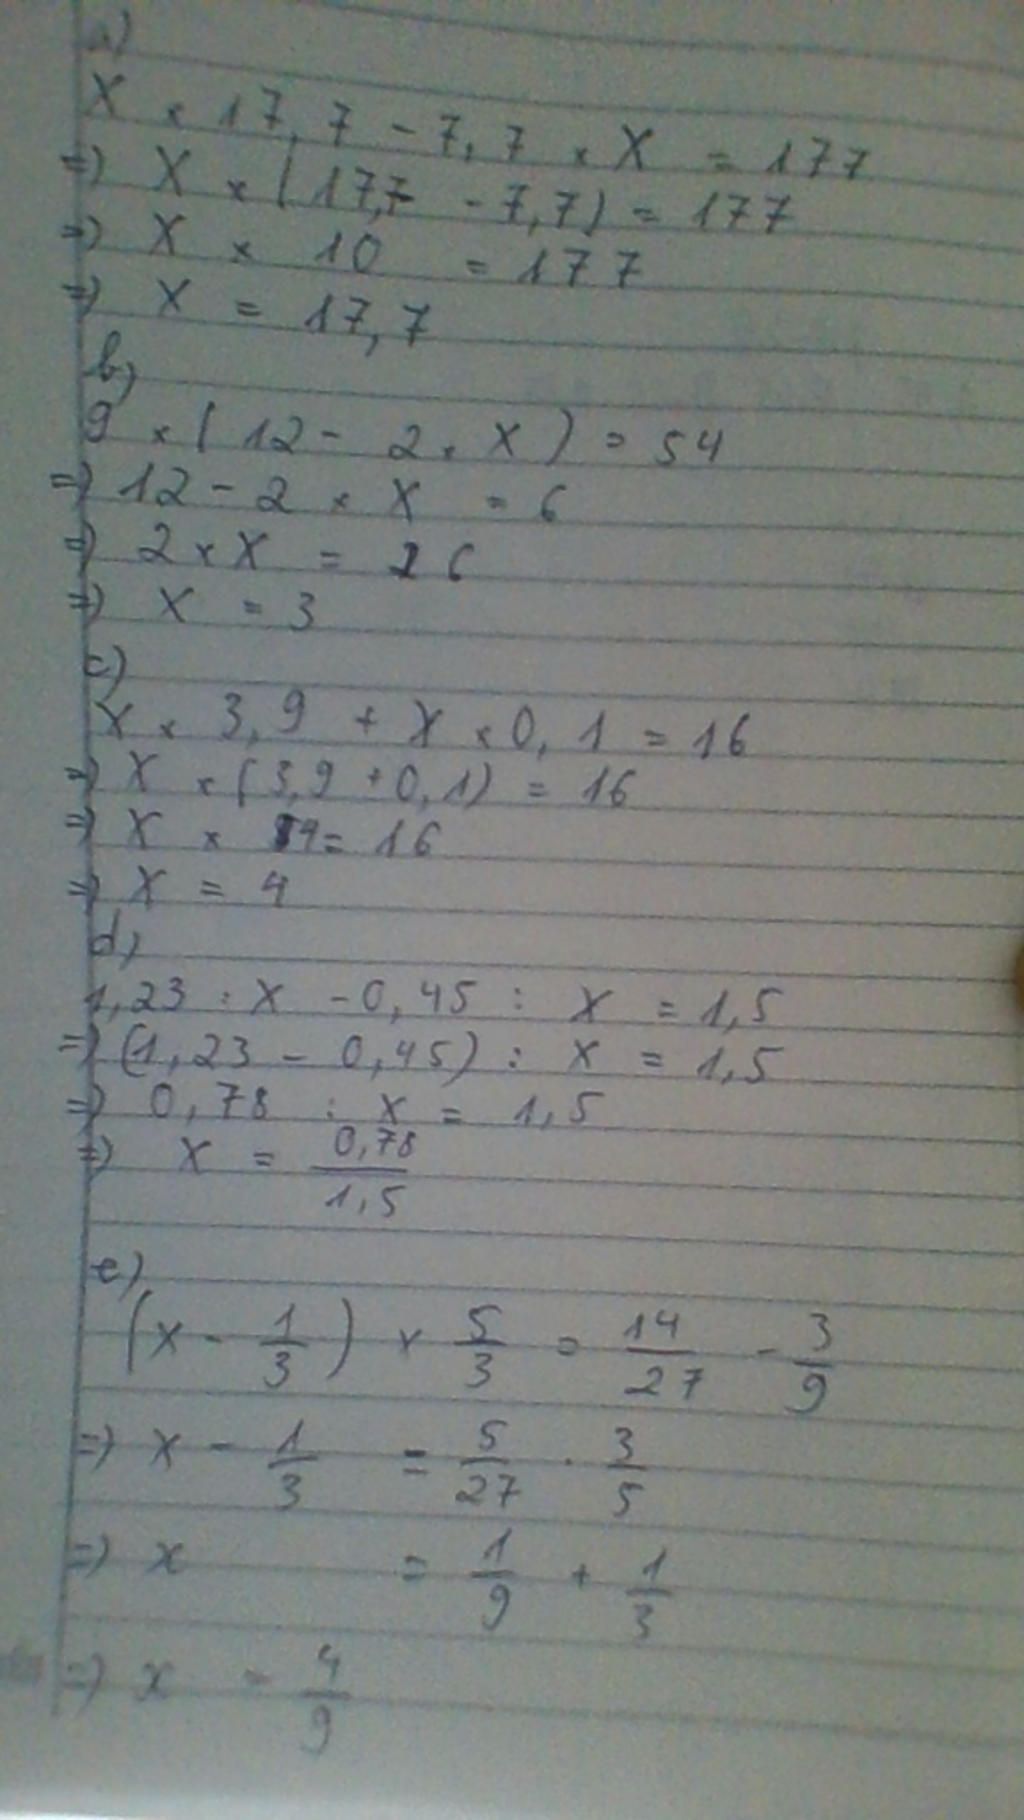 a)
X × 17,7 - 7,7 × X = 177
=) X × (17,7 - 7,7) = 177
=) X × 10 = 177
=) X = 17,7
b)
9 × (12 - 2 × X) = 54
=) 12 - 2 × X = 6
=) 2 × X = 6
=) X = 3
c)
X × 3,9 + X × 0,1 = 16
=) X × (3,9 + 0,1) = 16
=) X × 4 = 16
=) X = 4
d)
1,23 : X - 0,45 : X = 1,5
=) (1,23 - 0,45) : X = 1,5
=) 0,78 : X = 1,5
=) X = 0,78/1,5
e)
(x - 1/3) × 5/3 = 14/27 - 3/9
=) x - 1/3 = 5/27 . 3/5
=) x = 1/9 + 1/3
=) x = 4/9